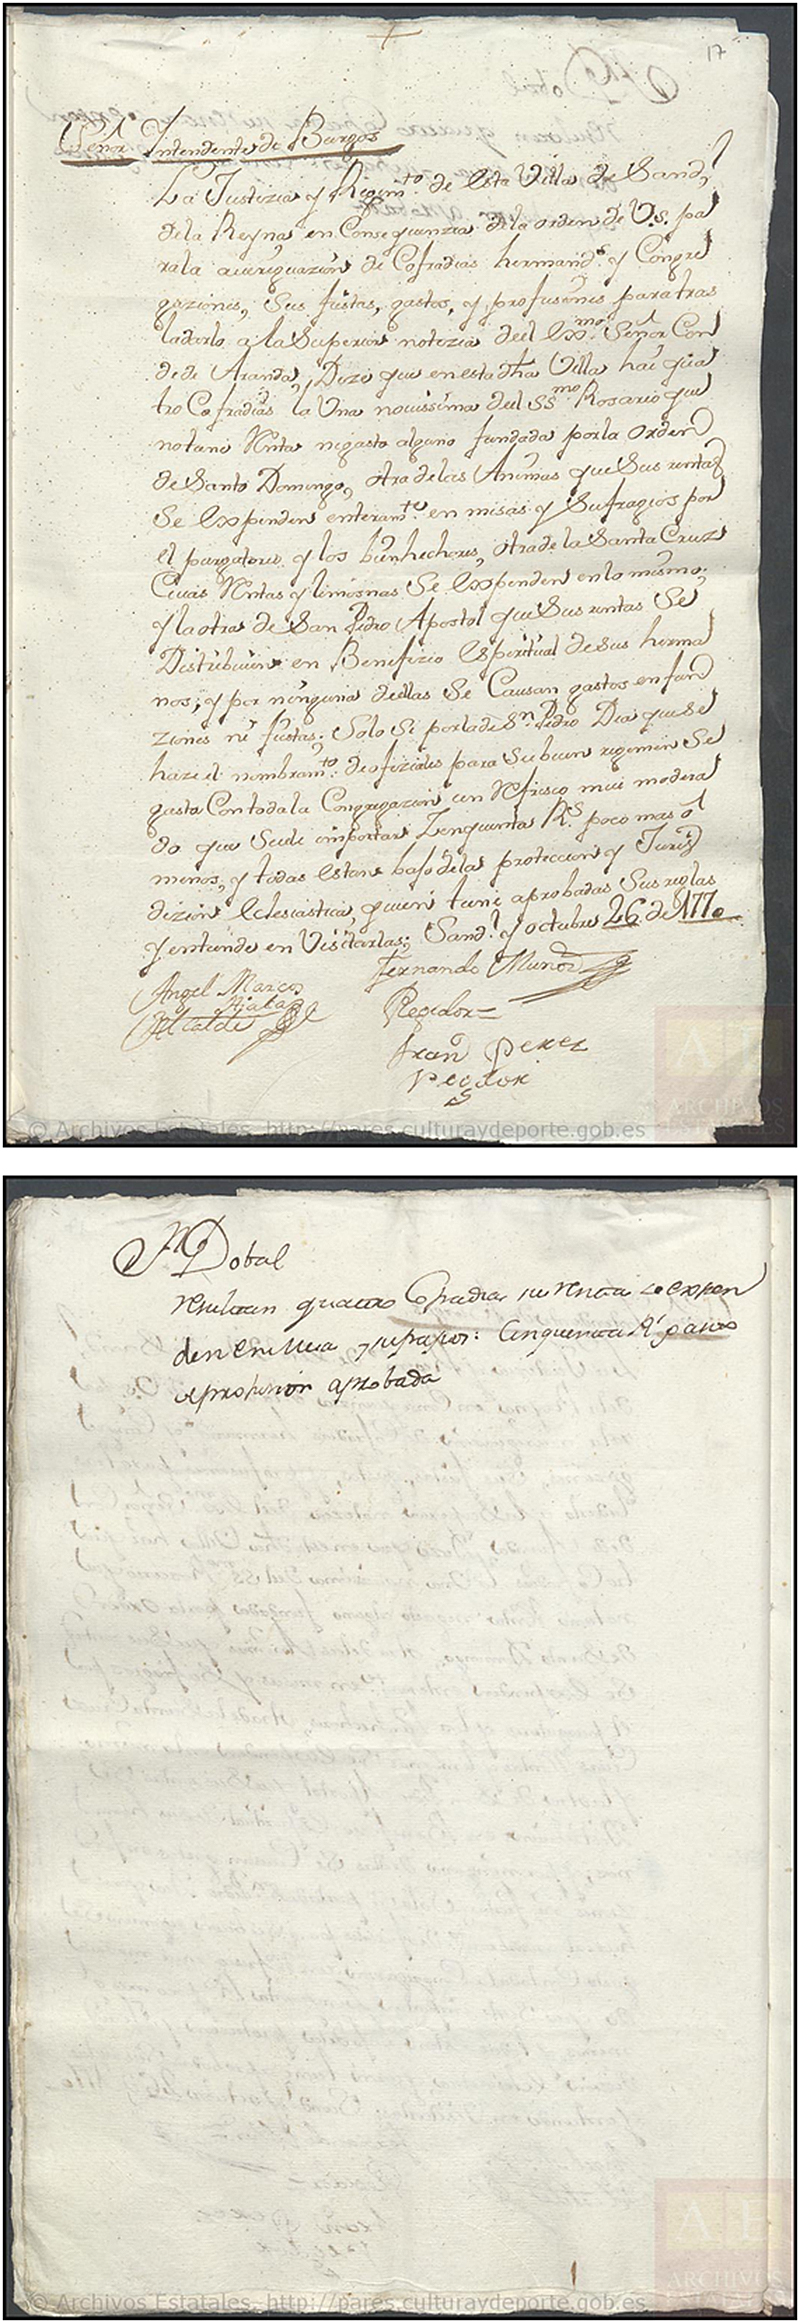 17
Señor Intendente de Burgos
La Justizia y Regim.to de esta Villa de Sand.l
de la Reyna, en Consequenzia de la orden de V.S. pa
rala averiguazion de Cofradias hermand.s y Congre
gaziones, Sus fiestas, gastos, y profusiones para tras
ladarlo a la Superior notizia del Ex.mo Señor Con
de de Aranda, Dize que en esta dha Villa hai qua
tro Cofradias la Una novissima del SS.mo Rosario que
no tiene Renta ni gasto alguno fundada por la Orden
de Santo Domingo, otra de las Animas que Sus rentas
Se Expenden enteram.te en misas y Sufragios por
el purgatorio y los bienhechores, otra de la Santa Cruz
Cuias Rentas y limosnas Se Expenden en lo mismo;
y la otra de San Pedro Apostol que Sus rentas Se
Distribuien en Benefizio Espiritual de sus herma
nos; y por ninguna de ellas Se Causan gastos en fun
ziones ni fiestas; Solo Si por la de S.n Pedro Dia que Se
haze el nombram.to de ofiziales para Su buen regimen Se
gasta Con toda la Congregazion un Refresco mui modera
do que Suele importar Zinquenta R.s poco mas o
menos, y todas estan bajo de la proteccion y Juris
dizion Eclesiastica, quien tiene aprobadas Sus reglas
y entiende en Visitarlas; Sand.l y octubre 26 de 1770
Angel Marcos
Aiala
Alcalde
Fernando Munoz
Regidor
Fran.co Perez
Regidor
© Archivos Estatales, http://pares.culturaydeporte.gob.es
AE
ARCHIVOS
ESTATALES
Dobal
resultan quatro Cofradias su renta se expen
den en Misas y sufragios: Cinquenta R.s gasto
y profusion aprobada
© Archivos Estatales, http://pares.culturaydeporte.gob.es
AE
ARCHIVOS
ESTATALES